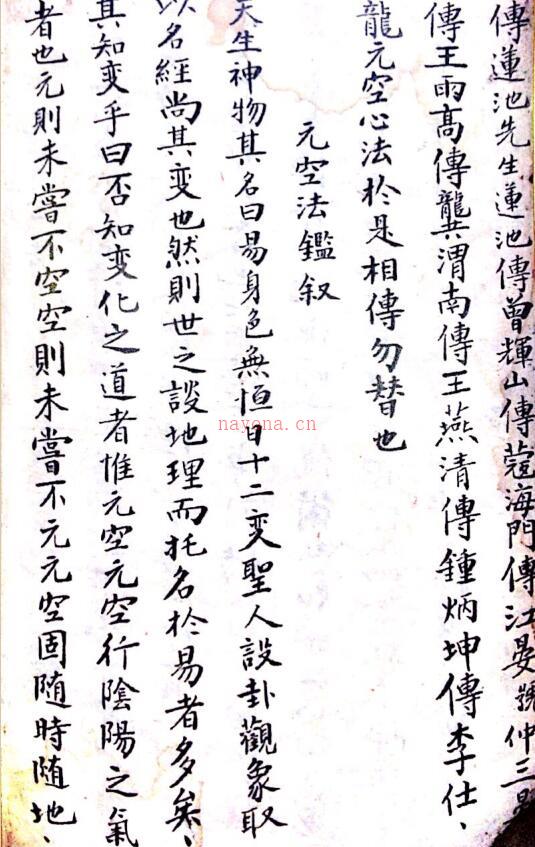 傳蓮池先生蓮池傳曾輝山傳蔻海門傳江晏號仲三易
傳王雨高傳龔渭南傳王燕清傳鍾炳坤傳李仕、
龍元空心法於是相傳勿替也
元空法鑑叙
天生神物其名曰易身色無恒日十二变聖人設卦觀象取
以名經尚其变也然則世之談地理而托名於易者多矣、
其知变乎曰否知变化之道者惟元空元空行陰陽之氣
者也元則未嘗不空空則未嘗不元元空固随時随地、
nayona.cn